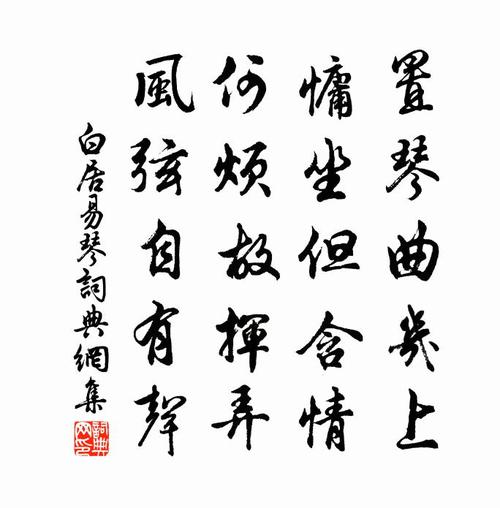 置琴曲几上
慵坐但含情
何烦故揮弄
風弦自有聲
白居易琴詞典網集
詞典网印